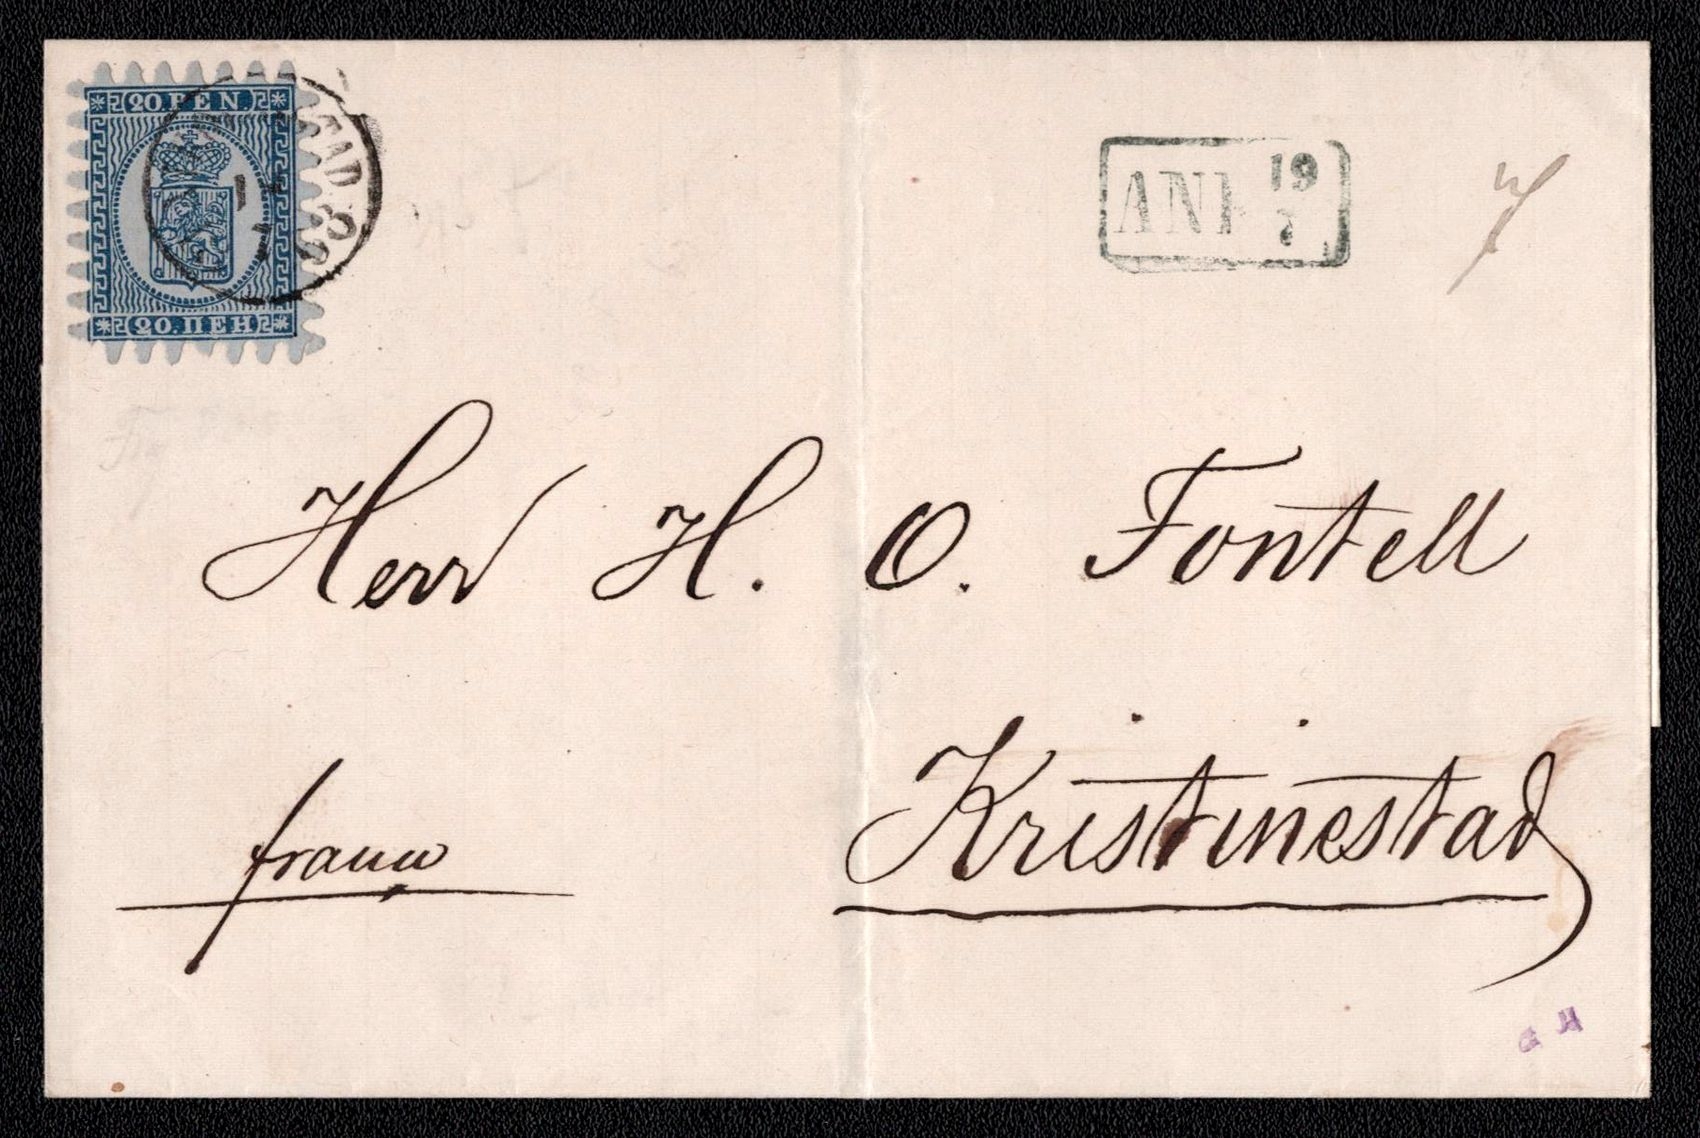 20. PEN.
TAD
20. ПЕН
ANK 19
7
Herr H. O. Fontell
Kristinestad
franco